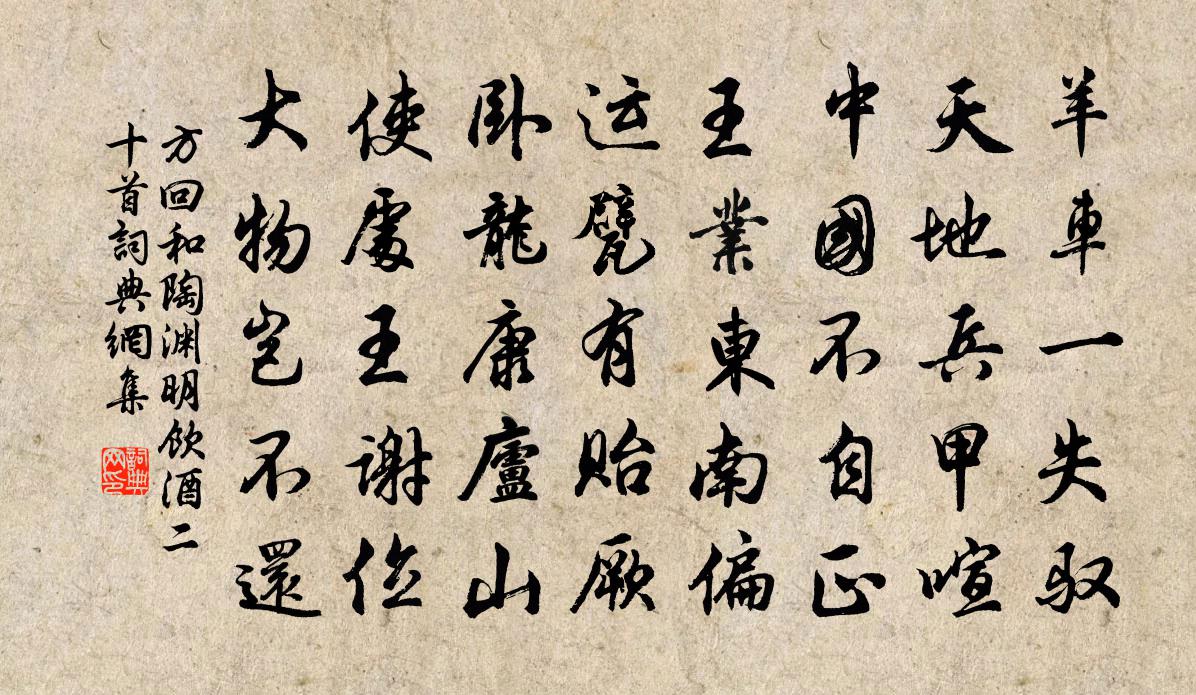 羊車一失驭
天地兵甲喧
中國不自正
王業東南偏
运甓有贻厥
卧龍康廬山
使處王謝位
大物岂不還
方回和陶渊明飲酒二
十首詞典網集
詞典网印